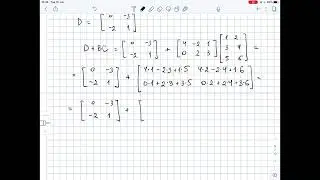 D = [ 0 -3
-2 1 ]
D+BC = [ 0 -3 ] + [ 4 -2 1 ] [ 1 2
3 4
-2 1 0 2 3 5 6 ] =
= [ 0 -3 ] + [ 4·1-2·3+1·5 4·2-2·4+1·6 ] =
-2 1 0·1+2·3+3·5 0·2+2·4+3·6
= [ 0 -3 ] + [
-2 1